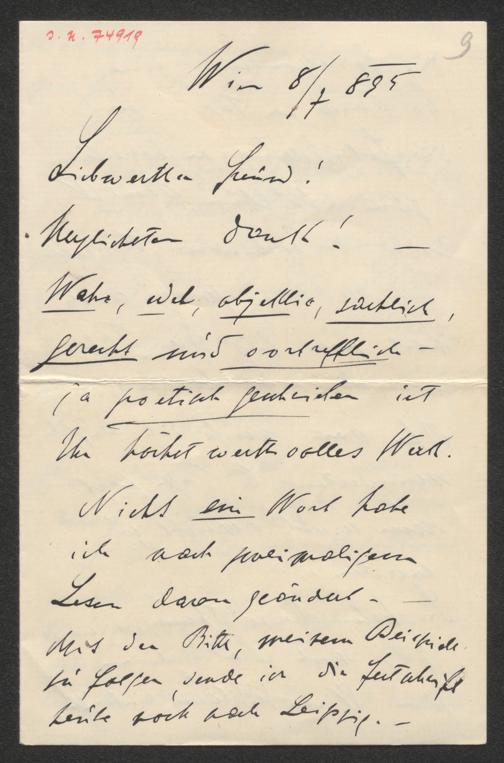 I. N. 74919
9
Wien 8/7 895
Liebwerther Freund!
Herzlichsten Dank! —
Wahr, edel, objektiv, sachlich,
gerecht und vortrefflich —
ja poetisch geschrieben ist
Ihr höchst werthvolles Werk.
Nicht ein Wort habe
ich nach zweimaligem
Lesen daran geändert. —
Mit der Bitte, meinem Beispiele
zu folgen, sende ich die Festschrift
heute noch nach Leipzig. —